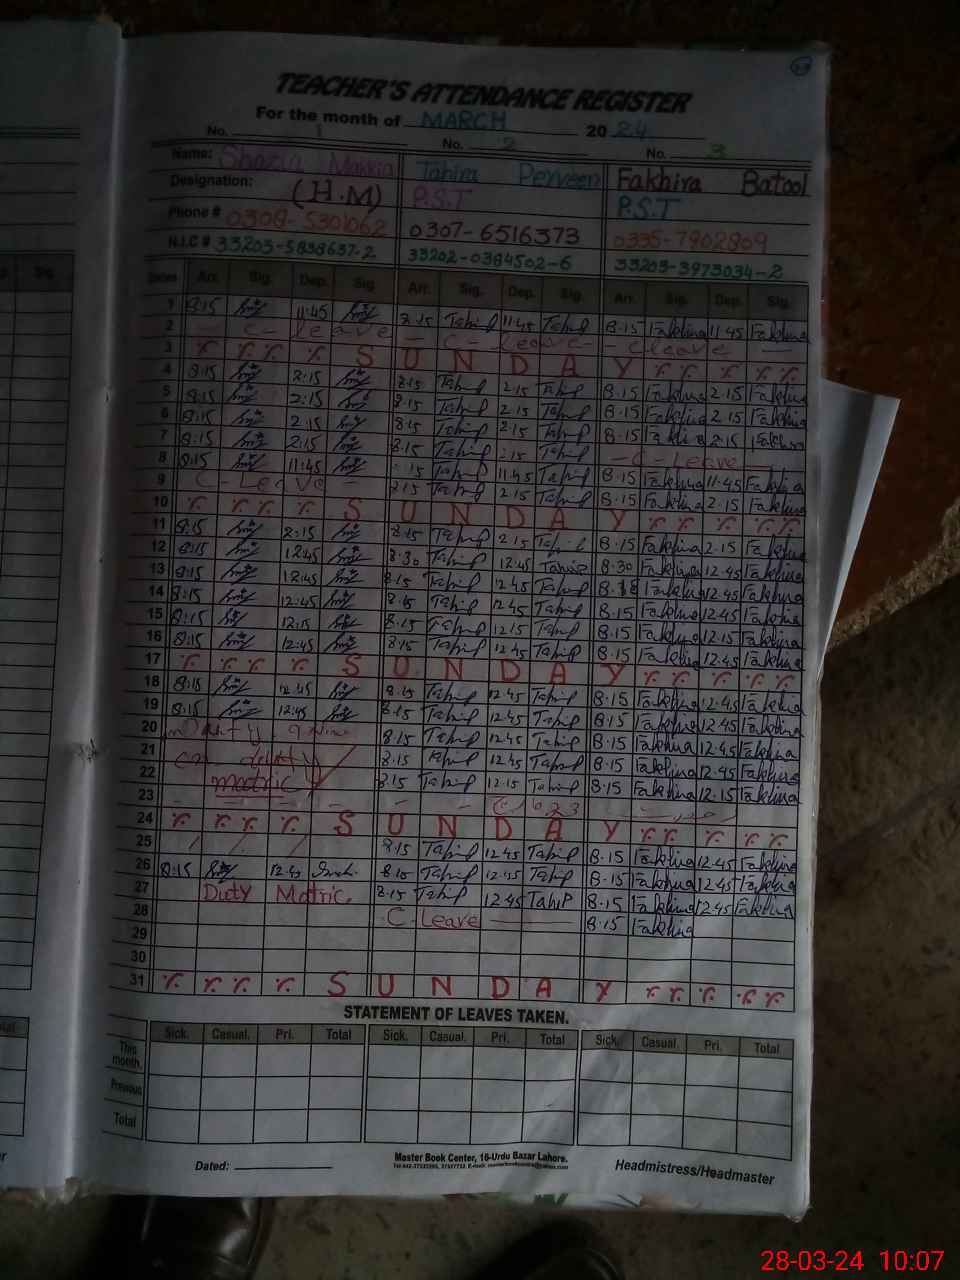 TEACHER'S ATTENDANCE REGISTER
For the month of MARCH 2024
No. 1 No. 2 No. 3
Name: Shazia Tahira Perveen Fakhira Batool
Designation: (H.M) P.S.T P.S.T
Phone # 0308-5301062 0307-6516373 0335-7902809
N.I.C # 33203-5838637-2 33202-0384502-6 33203-3973034-2
Dates Arr. Sig. Dep. Sig. Arr. Sig. Dep. Sig. Arr. Sig. Dep. Sig.
1 8:15 11:45 8.15 Tahir 11.45 Tahir 8.15 Fakhira 11.45 Fakhira
2 - C - leave - C - leave - C leave -
3 S U N D A Y
4 8:15 2:15 8.15 Tahir 2.15 Tahir 8.15 Fakhira 2.15 Fakhira
5 8:15 2:15 8.15 Tahir 2.15 Tahir 8.15 Fakhira 2.15 Fakhira
6 8:15 2:15 8.15 Tahir 2.15 Tahir 8.15 Fakhira 2.15 Fakhira
7 8:15 2:15 8.15 Tahir Tahir - C - Leave
8 8:15 11:45 Tahir 11.45 Tahir 8.15 Fakhira 11.45 Fakhira
9 C - Leave - 8.15 Tahir 2.15 Tahir 8.15 Fakhira 2.15 Fakhira
10 S U N D A Y
11 8:15 2:15 8.15 Tahir 2.15 Tahir 8.15 Fakhira 2.15 Fakhira
12 8:15 12:45 8.30 Tahir 12.45 8.30 Fakhira 12.45 Fakhira
13 8:15 12:45 8.15 Tahir 12.45 Tahir Fakhira 12.45 Fakhira
14 8:15 12:45 8.15 Tahir 12.45 Tahir 8.15 Fakhira 12.45 Fakhira
15 8:15 12:15 8.15 Tahir 12.15 Tahir 8.15 Fakhira 12.15 Fakhira
16 8:15 12:45 8.15 Tahir 12.45 Tahir 8.15 Fakhira 12.45 Fakhira
17 S U N D A Y
18 8:15 12:45 8.15 Tahir 12.45 Tahir 8.15 Fakhira 12.45 Fakhira
19 8:15 12:45 8.15 Tahir 12.45 Tahir 8.15 Fakhira 12.45 Fakhira
20 8.15 Tahir 12.45 Tahir 8.15 Fakhira 12.45 Fakhira
21 duty 8.15 Tahir 12.45 Tahir 8.15 Fakhira 12.45 Fakhira
22 matric 8.15 Tahir 12.15 Tahir 8.15 Fakhira 12.15 Fakhira
23
24 S U N D A Y
25 8.15 Tahir 12.45 Tahir 8.15 Fakhira 12.45 Fakhira
26 8:15 12:45 8.15 Tahir 12.45 Tahir 8.15 Fakhira 12.45 Fakhira
27 Duty Matric. 8.15 Tahir 12.45 Tahir 8.15 Fakhira 12.45 Fakhira
28 C - Leave 8.15 Fakhira
29
30
31 S U N D A Y
STATEMENT OF LEAVES TAKEN.
Sick. Casual. Pri. Total Sick. Casual. Pri. Total Sick. Casual. Pri. Total
This month.
Previous
Total
Master Book Center, 16-Urdu Bazar Lahore.
Dated: Headmistress/Headmaster
28-03-24 10:07